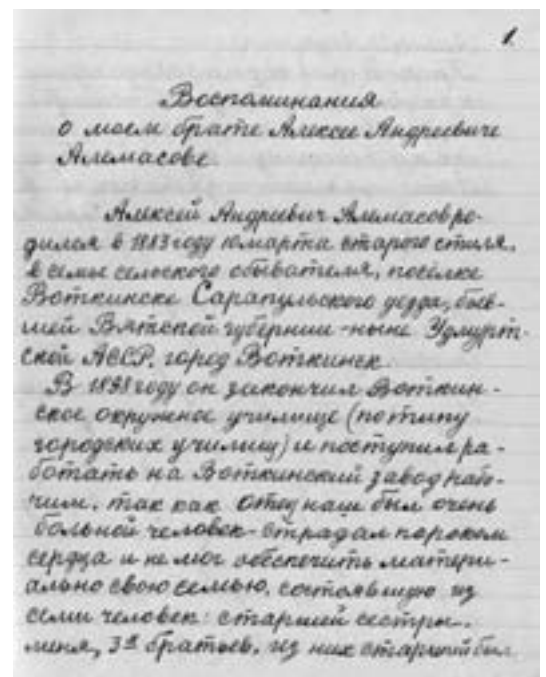 1.
Воспоминания
о моем брате Алексее Андреевиче
Алемасове.
Алексей Андреевич Алемасов ро-
дился в 1883 году 10 марта старого стиля,
в семье сельского обывателя, поселке
Воткинске Сарапульского уезда, быв-
шей Вятской губернии - ныне Удмурт-
ской АССР, город Воткинск.
В 1898 году он закончил Воткин-
ское окружное училище (по типу
городских училищ) и поступил ра-
ботать на Воткинский завод рабо-
чим, так как отец наш был очень
больной человек - страдал пороком
сердца и не мог обеспечить матери-
ально свою семью, состоявшую из
семи человек: старшей сестры,
меня, 3х братьев, из них старший был